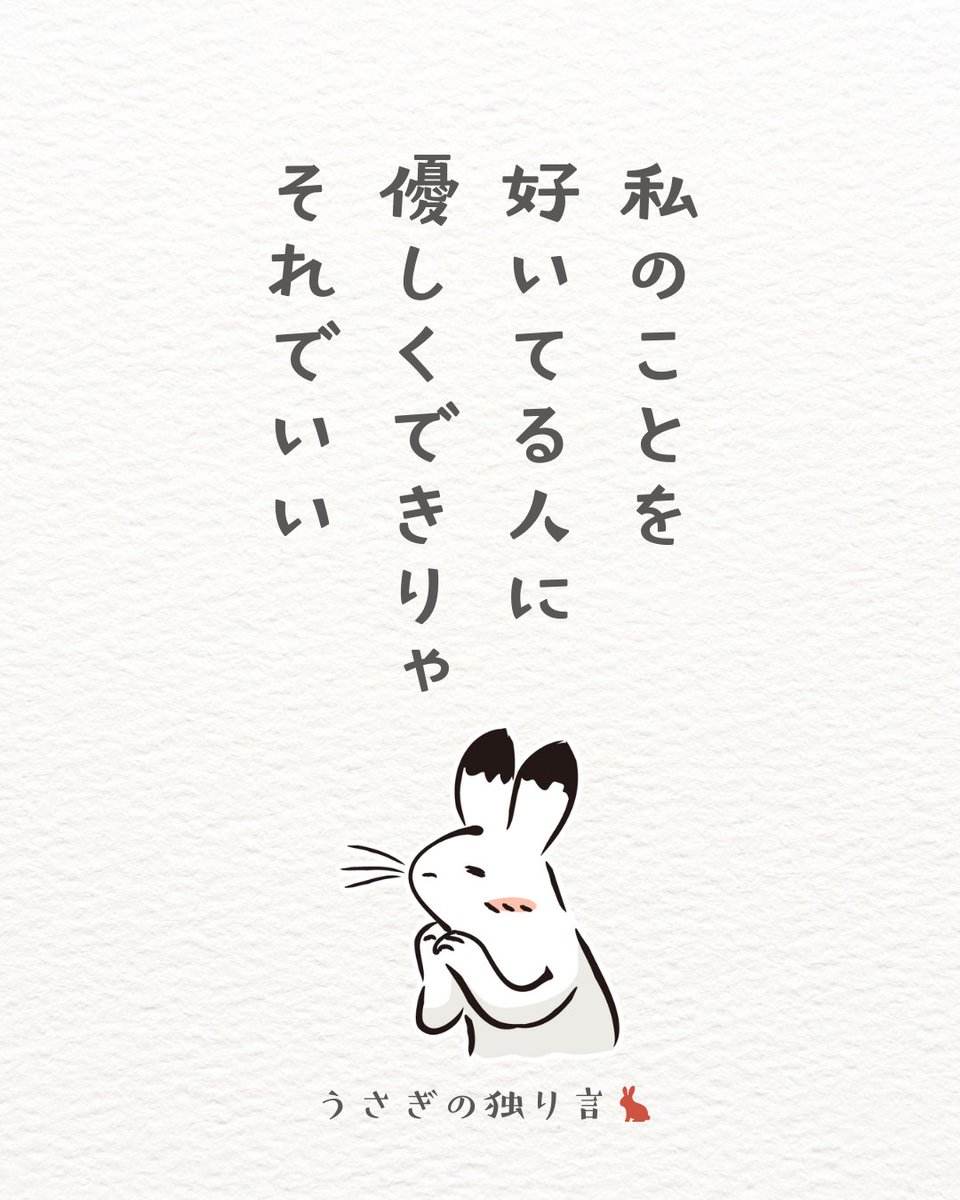 私のことを
好いてる人に
優しくできりゃ
それでいい
うさぎの独り言